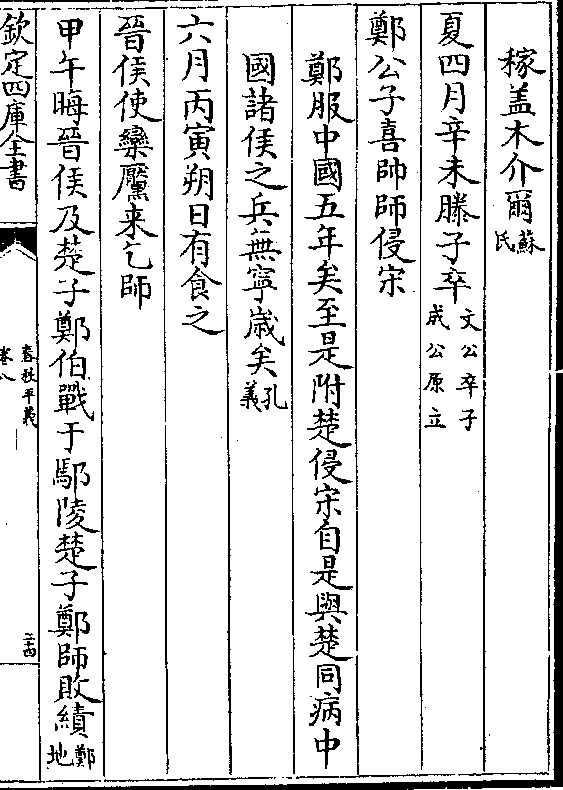 稼盖木介爾蘇氏
夏四月辛未滕子卒文公卒子成公原立
鄭公子喜帥師侵宋
鄭服中國五年矣至是附楚侵宋自是與楚同病中
國諸侯之兵無寧嵗矣孔義
六月丙寅朔日有食之
晉侯使欒黶来乞師
甲午晦晉侯及楚子鄭伯戰于鄢陵楚子鄭師敗績鄭地
欽定四庫全書
春秋平義
卷八
二十四